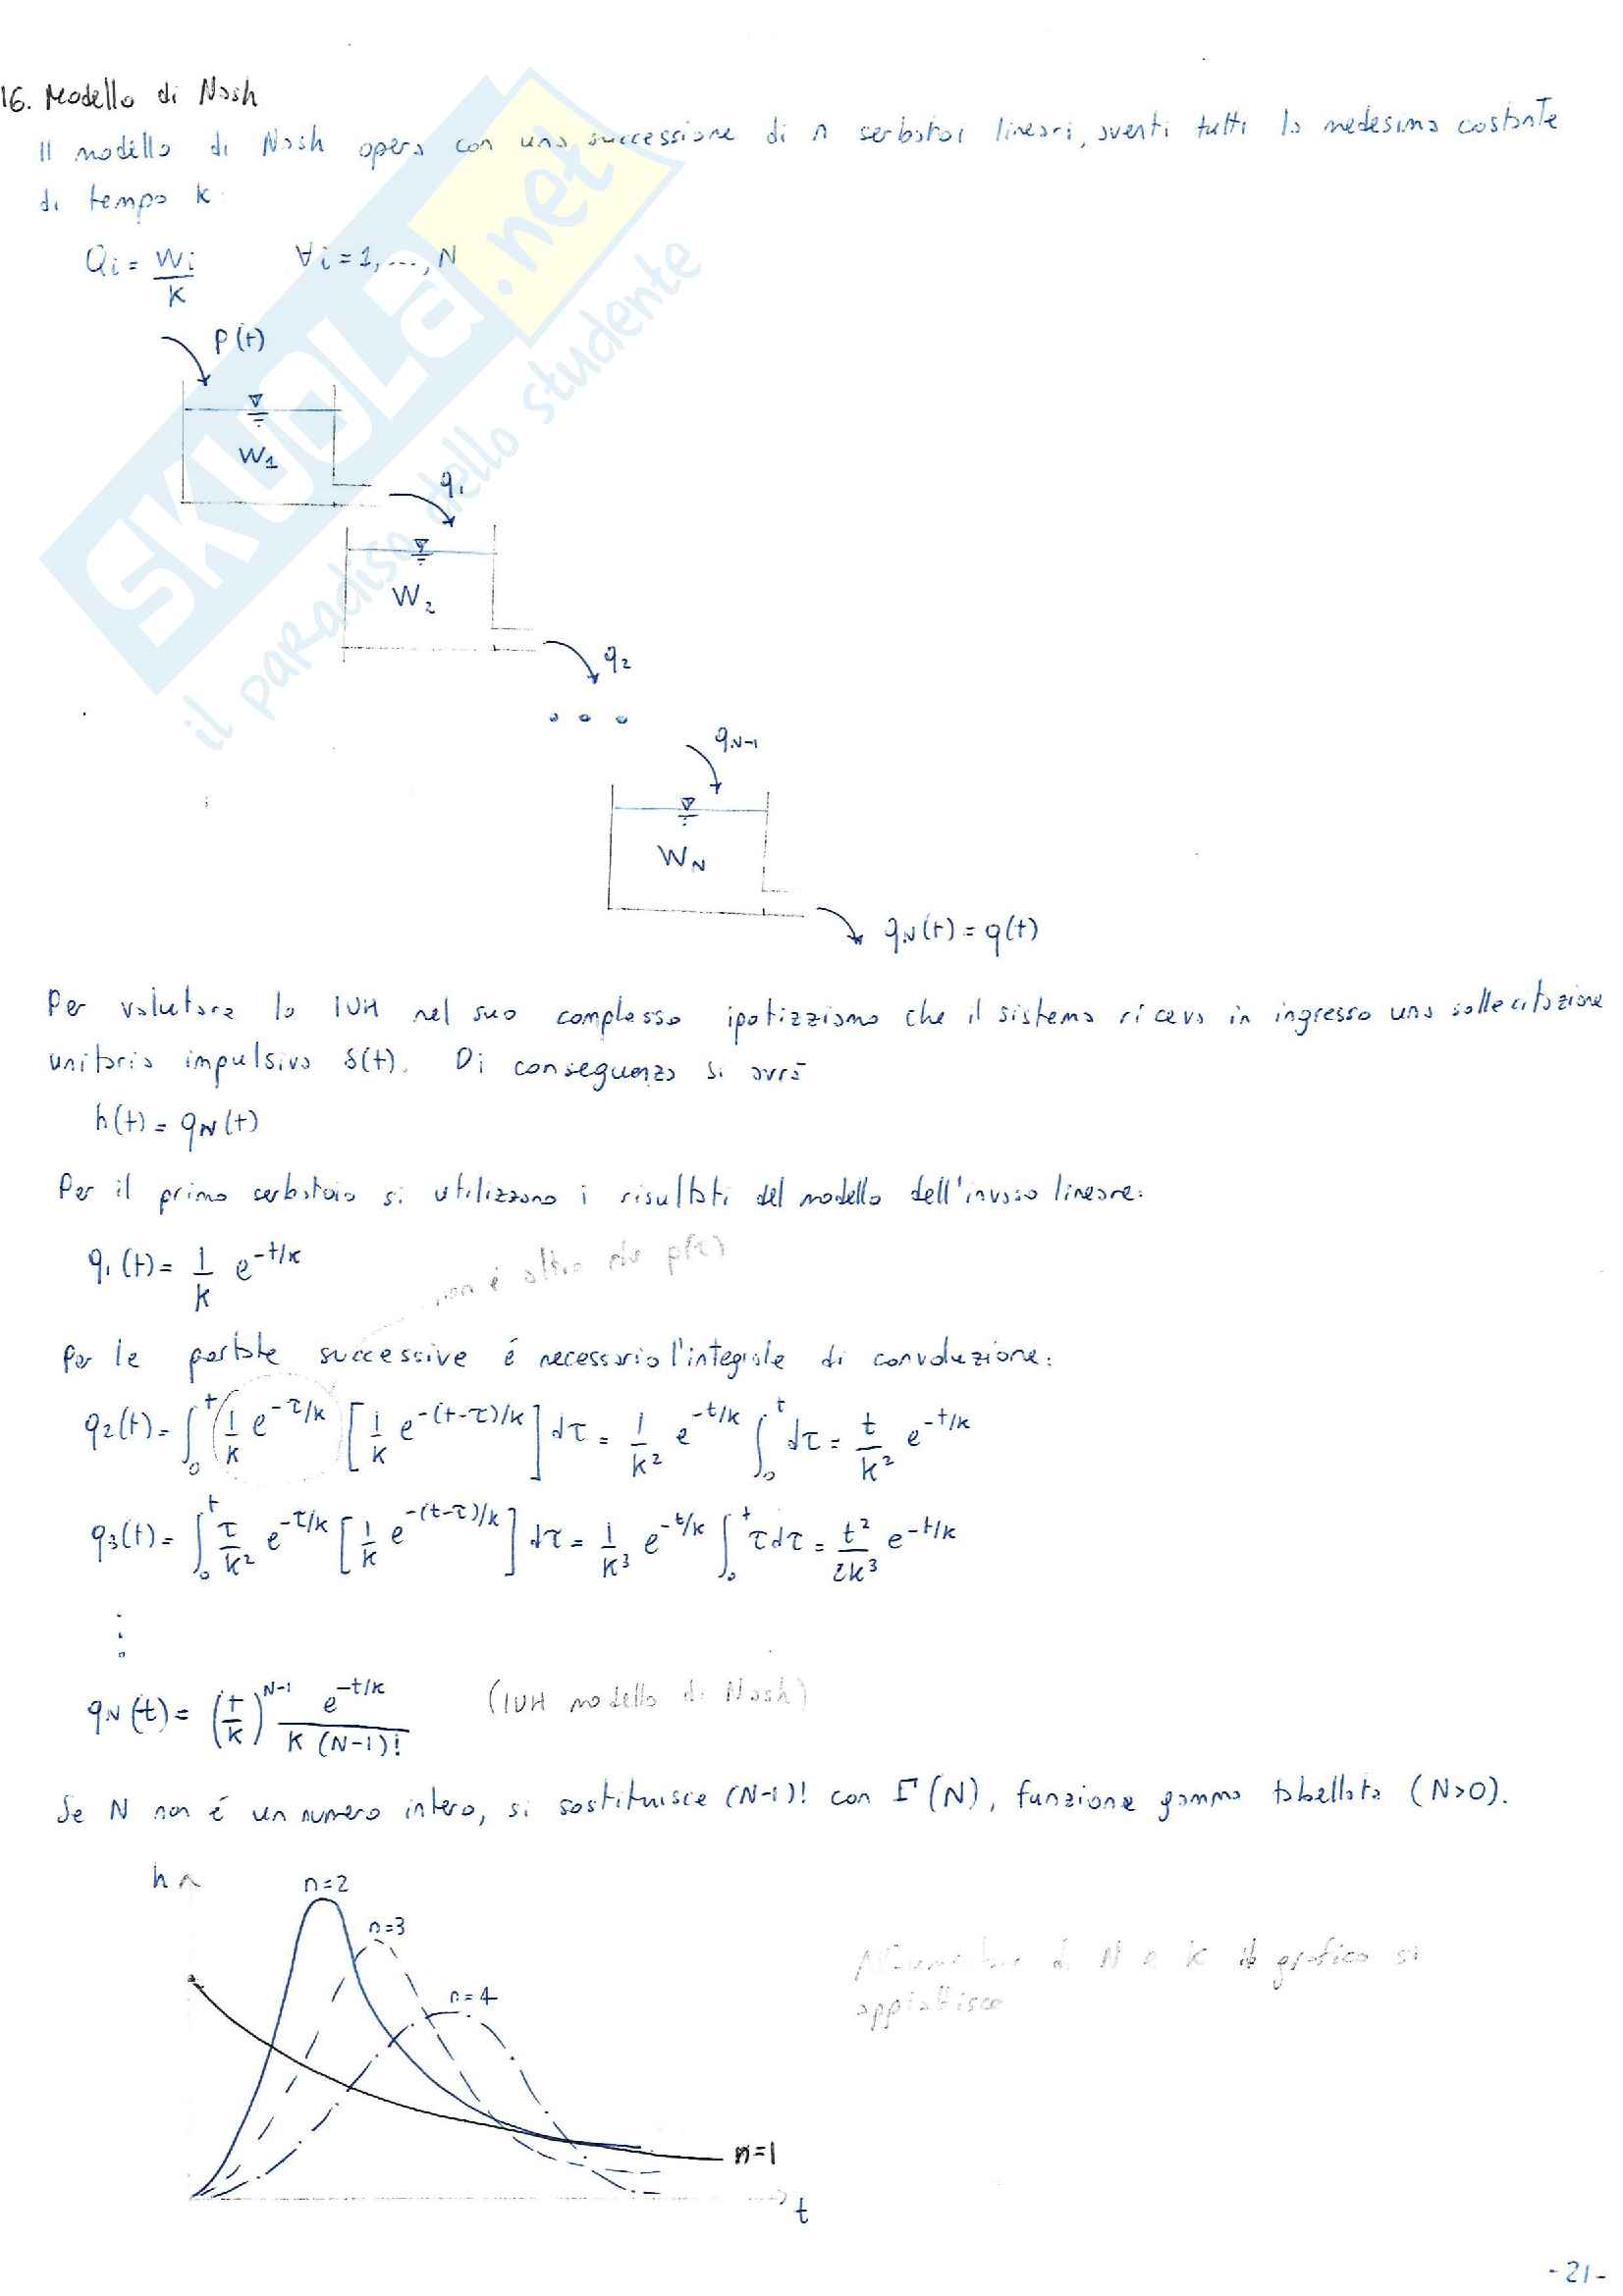 16. Modello di Nash
Il modello di Nash opera con una successione di n serbatoi lineari, aventi tutti la medesima costante
di tempo k:
Qi = Wi/k ∀i = 1, ..., N
p(t)
W1
q1
W2
q2
...
qN-1
WN
qN(t) = q(t)
Per valutare lo IUH nel suo complesso ipotizziamo che il sistema riceva in ingresso una sollecitazione
unitaria impulsiva δ(t). Di conseguenza si avrà
h(t) = qN(t)
Per il primo serbatoio si utilizzano i risultati del modello dell'invaso lineare:
q1(t) = 1/k e^(-t/k)
non è altro che p(τ)
Per le portate successive é necessario l'integrale di convoluzione:
q2(t) = ∫0^t (1/k e^(-τ/k) [1/k e^(-(t-τ)/k)] dτ = 1/k² e^(-t/k) ∫0^t dτ = t/k² e^(-t/k)
q3(t) = ∫0^t τ/k² e^(-τ/k) [1/k e^(-(t-τ)/k)] dτ = 1/k³ e^(-t/k) ∫0^t τdτ = t²/2k³ e^(-t/k)
⋮
qN(t) = (t/k)^(N-1) e^(-t/k)/(k (N-1)!) (IUH modello di Nash)
Se N non é un numero intero, si sostituisce (N-1)! con Γ(N), funzione gamma tabellata (N>0).
h
n=2
n=3
n=4
n=1
t
di N e k il grafico si
appiattisce
-21-
SKUOLA.net
il paradiso dello studente